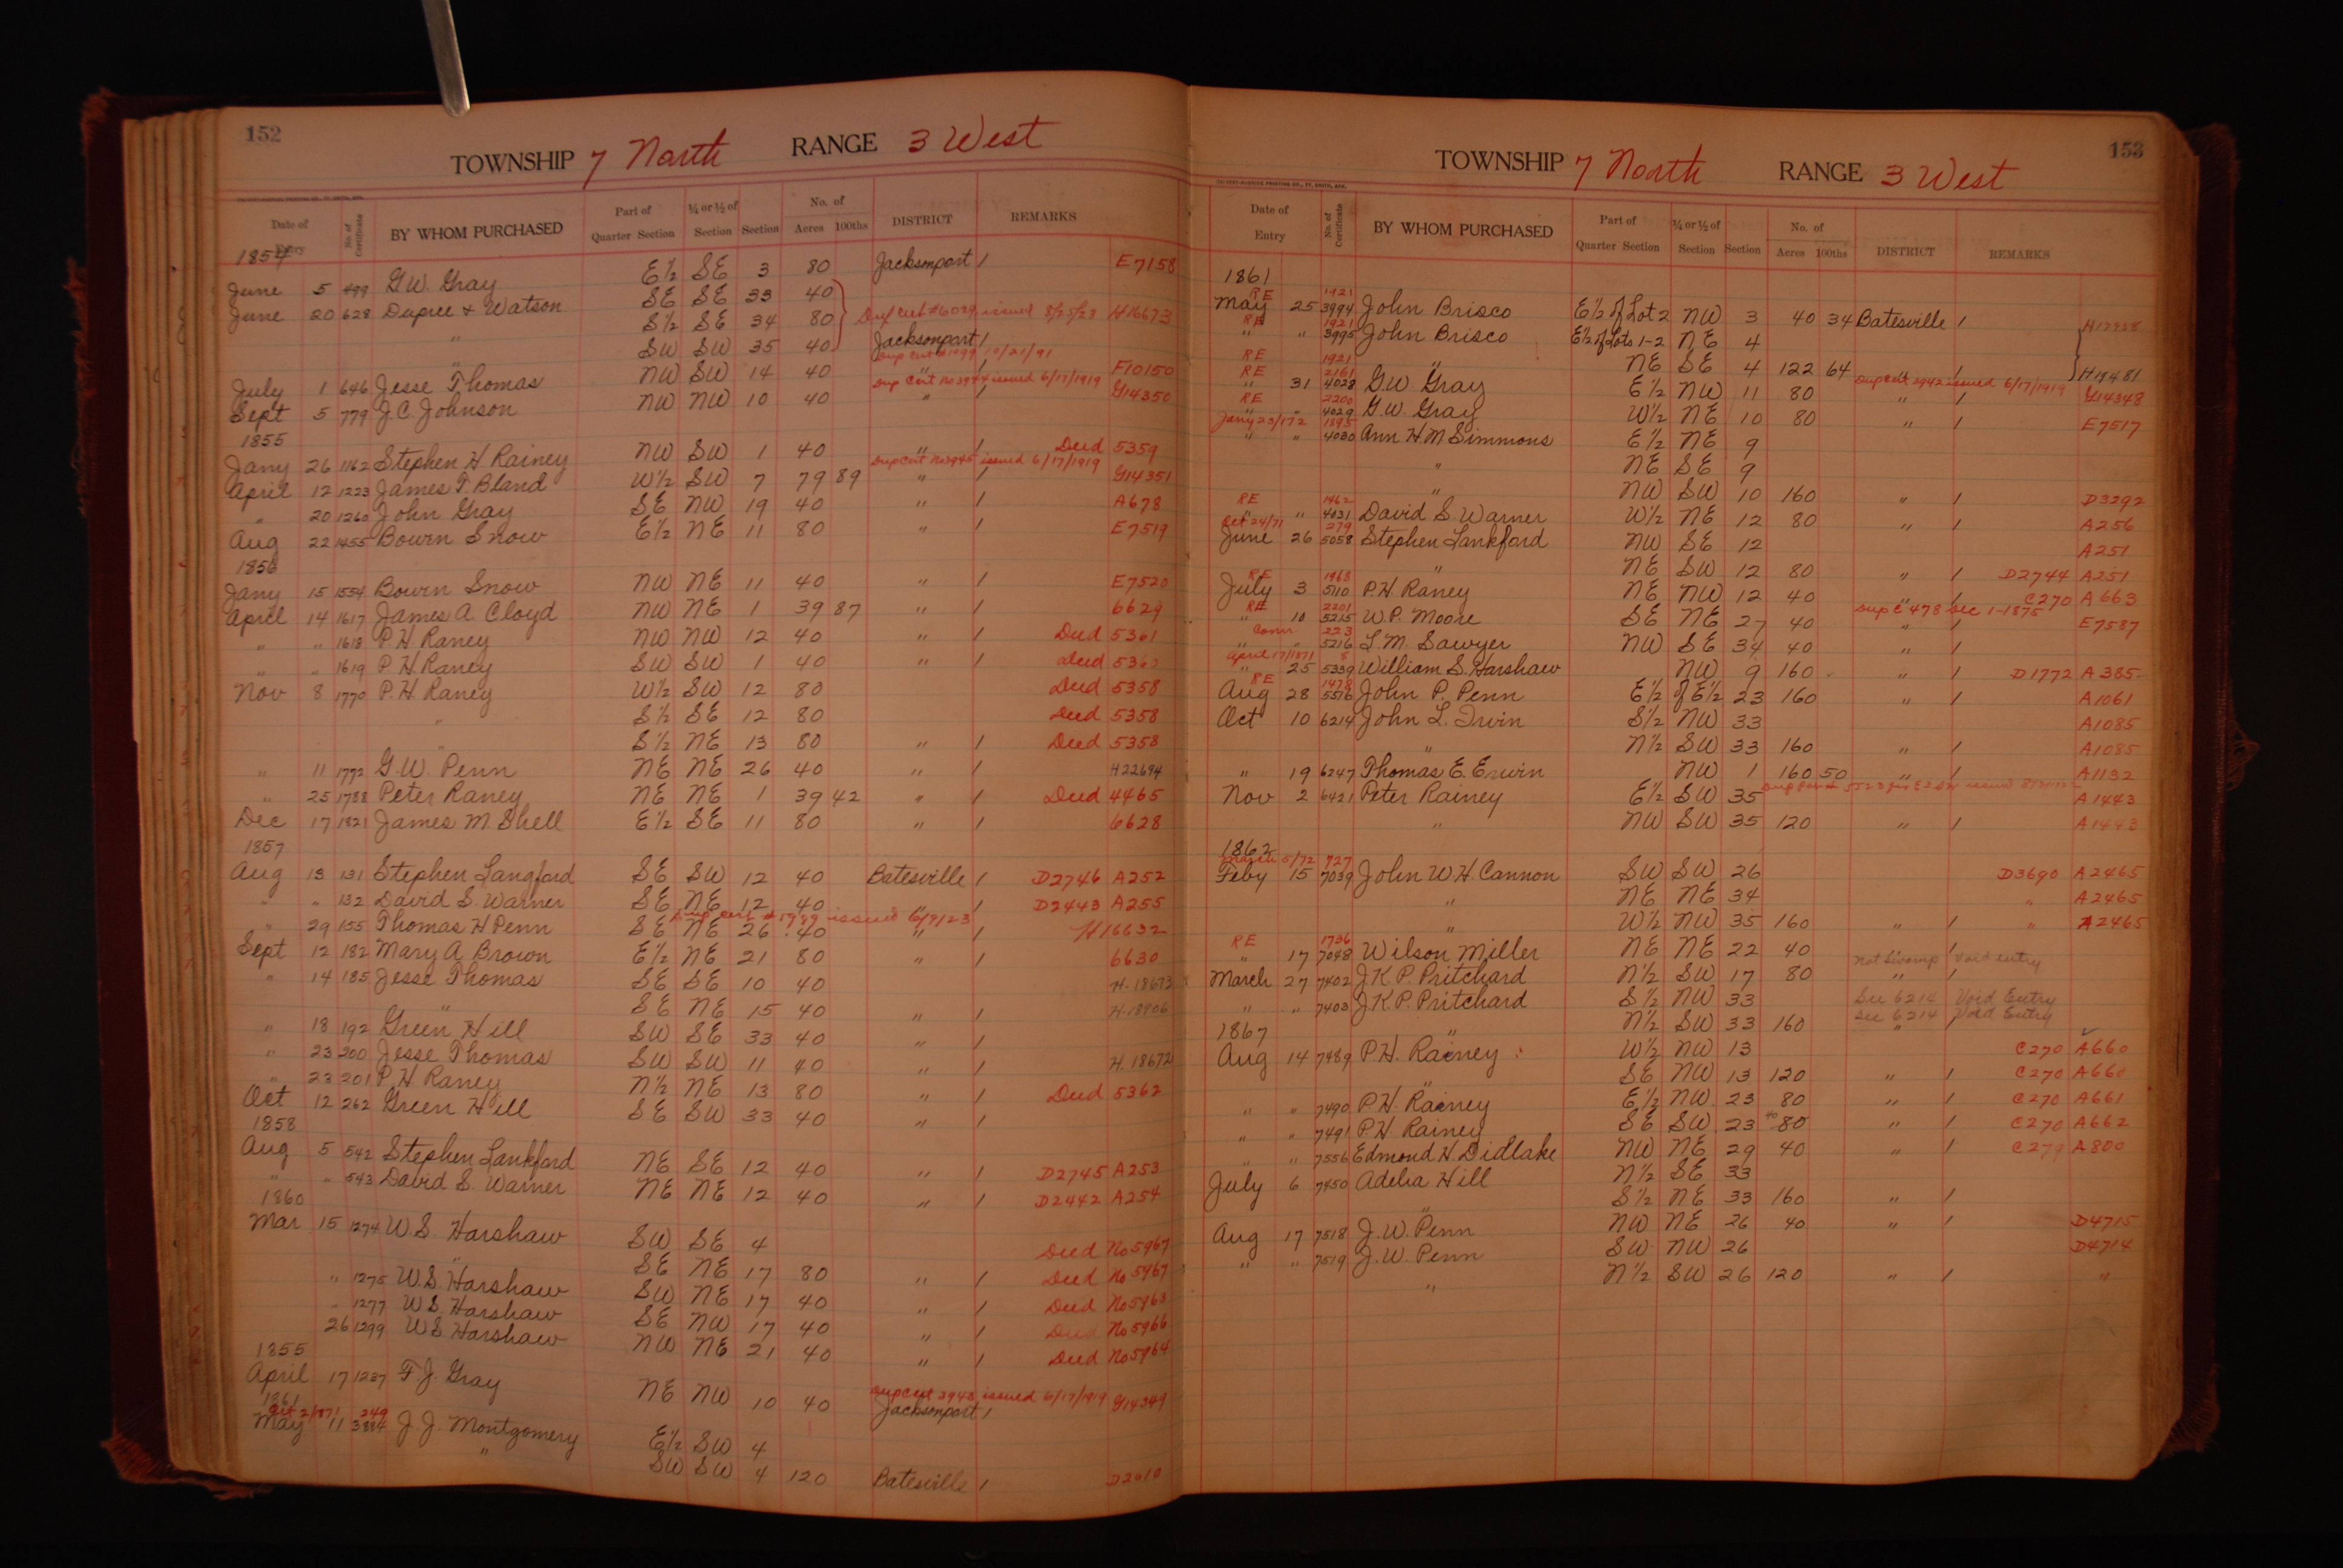 152
TOWNSHIP 7 North RANGE 3 West
Date of Entry No. of Certificate BY WHOM PURCHASED Part of Quarter Section ¼ or ½ of Section Section No. of Acres 100ths DISTRICT REMARKS
1854
June 5 499 G.W. Gray E½ SE 3 80 Jacksonport / E7158
June 20 628 Dupree & Watson SE SE 33 40
" S½ SE 34 80 Dup Cert #6029 issued 8/25/23 H16673
SW SW 35 40 Jacksonport /
Dup Cert #1099 10/21/91
July 1 646 Jesse Thomas NW SW 14 40 " / F10150
Dup Cert No 3944 issued 6/17/1919
Sept 5 779 J.C. Johnson NW NW 10 40 " / G14350
1855
Jany 26 1162 Stephen H Rainey NW SW 1 40 " / Deed 5359
Dup Cert No 3945 issued 6/17/1919
April 12 1223 James T Bland W½ SW 7 79 89 " / G14351
" 20 1260 John Gray SE NW 19 40 " / A678
Aug 22 1455 Bowen Snow E½ NE 11 80 " / E7519
1856
Jany 15 1554 Bowen Snow NW NE 11 40 " / E7520
April 14 1617 James A. Cloyd NW NE 1 39 87 " / 6629
" " 1618 P.H. Raney NW NW 12 40 " / Deed 5361
" " 1619 P.H. Raney SW SW 1 40 " / Deed
Nov 8 1770 P.H. Raney W½ SW 12 80 Deed 5358
" S½ SE 12 80 Deed 5358
" S½ NE 13 80 " / Deed 5358
" 11 1772 G.W. Penn NE NE 26 40 " / H22694
" 25 1788 Peter Raney NE NE 1 39 42 " / Deed 4465
Dec 17 1821 James M. Shell E½ SE 11 80 " / 6628
1857
Aug 13 131 Stephen Langford SE SW 12 40 Batesville / D2746 A252
" " 132 David S. Warner SE NE 12 40 " / D2443 A255
Dup cert # issued 6/9/23
" 29 155 Thomas H Penn SE NE 26 40 " / H16632
Sept 12 182 Mary A Brown E½ NE 21 80 " / 6630
" 14 185 Jesse Thomas SE SE 10 40 H.18673
" SE NE 15 40 " / H.18906
" 18 192 Green Hill SW SE 33 40 " /
" 23 200 Jesse Thomas SW SW 11 40 " / H.18672
" 23 201 P.H. Raney N½ NE 13 80 " / Deed 5362
Oct 12 262 Green Hill SE SW 33 40 " /
1858
Aug 5 542 Stephen Lankford NE SE 12 40 " / D2745 A253
" " 543 David S. Warner NE NE 12 40 " / D2442 A254
1860
Mar 15 1274 W.S. Harshaw SW SE 4 Deed No 5967
" SE NE 17 80 " / Deed No 5967
" 1275 W.S. Harshaw SW NE 17 40 " / Deed No 5963
" 1277 W.S. Harshaw SE NW 17 40 " / Deed No 5966
26 1299 W.S. Harshaw NW NE 21 40 " / Deed No 5964
1855
Dup Cert 3943 issued 6/17/1919
April 17 1237 F.J. Gray NE NW 10 40 Jacksonport / G14349
1861
Oct 2/1871 249
May 11 3884 J.J. Montgomery E½ SW 4
" SW SW 4 120 Batesville / D2610
153
TOWNSHIP 7 North RANGE 3 West
Date of Entry No. of Certificate BY WHOM PURCHASED Part of Quarter Section ¼ or ½ of Section Section No. of Acres 100ths DISTRICT REMARKS
1861
RE 1921
May 25 3994 John Brisco E½ of Lot 2 NW 3 40 34 Batesville /
RE 1921
" " 3995 John Brisco E½ of Lots 1-2 NE 4
RE 1921
" NE SE 4 122 64 " / H19481
RE 2161 Dup Cert 3942 issued 6/17/1919
" 31 4028 G.W Gray E½ NW 11 80 " / G14348
RE 2200
" " 4029 G.W. Gray W½ NE 10 80 " / E7517
Jany 23/172 1895
" " 4030 Ann H.M Simmons E½ NE 9
" NE SE 9
" NW SW 10 160 " / D3292
RE 1462
" " 4031 David S Warner W½ NE 12 80 " / A256
Oct 24/71 279
June 26 5058 Stephen Lankford NW SE 12 A251
" NE SW 12 80 " / D2744 A251
RE 1968
July 3 5110 P.H. Raney NE NW 12 40 " / C270 A663
RE 2201 Dup C 478 Dec 1-1875
" 10 5215 W.P. Moore SE NE 27 40 " / E7587
Comr. 223
" " 5216 L.M. Sawyer NW SE 34 40 " /
April 17/1871 8
" 25 5339 William S. Harshaw NW 9 160 " / D1772 A385
RE 1478
Aug 28 5516 John P. Penn E½ of E½ 23 160 " / A1061
Oct 10 6214 John L. Irwin S½ NW 33 A1085
" N½ SW 33 160 " / A1085
" 19 6247 Thomas E. Erwin NW 1 160 50 " / A1132
Nov 2 6421 Peter Rainey E½ SW 35 A1443
" NW SW 35 120 " / A1443
1862
March 5/72 927
Feby 15 7039 John W.H. Cannon SW SW 26 D3690 A2465
" NE NE 34 " A2465
" W½ NW 35 160 " / " A2465
RE 1736
" 17 7048 Wilson Miller NE NE 22 40 " /
Not Swamp Void entry
March 27 7402 J.K.P. Pritchard N½ SW 17 80 " /
" " 7403 J.K.P. Pritchard S½ NW 33 See 6214 Void Entry
" N½ SW 33 160 See 6214 Void Entry
1867
Aug 14 7489 P.H. Rainey W½ NW 13 C270 A660
" SE NW 13 120 " / C270 A660
" " 7490 P.H. Rainey E½ NW 23 80 " / C270 A661
" " 7491 P.H. Rainey SE SW 23 40 80 " / C270 A662
" " 7556 Edmond H. Didlake NW NE 29 40 " / C279 A800
July 6 7450 Adelia Hill N½ SE 33
" S½ NE 33 160 " /
Aug 17 7518 J.W. Penn NW NE 26 40 " / D4715
" " 7519 J.W. Penn SW NW 26 D4714
" N½ SW 26 120 " / "